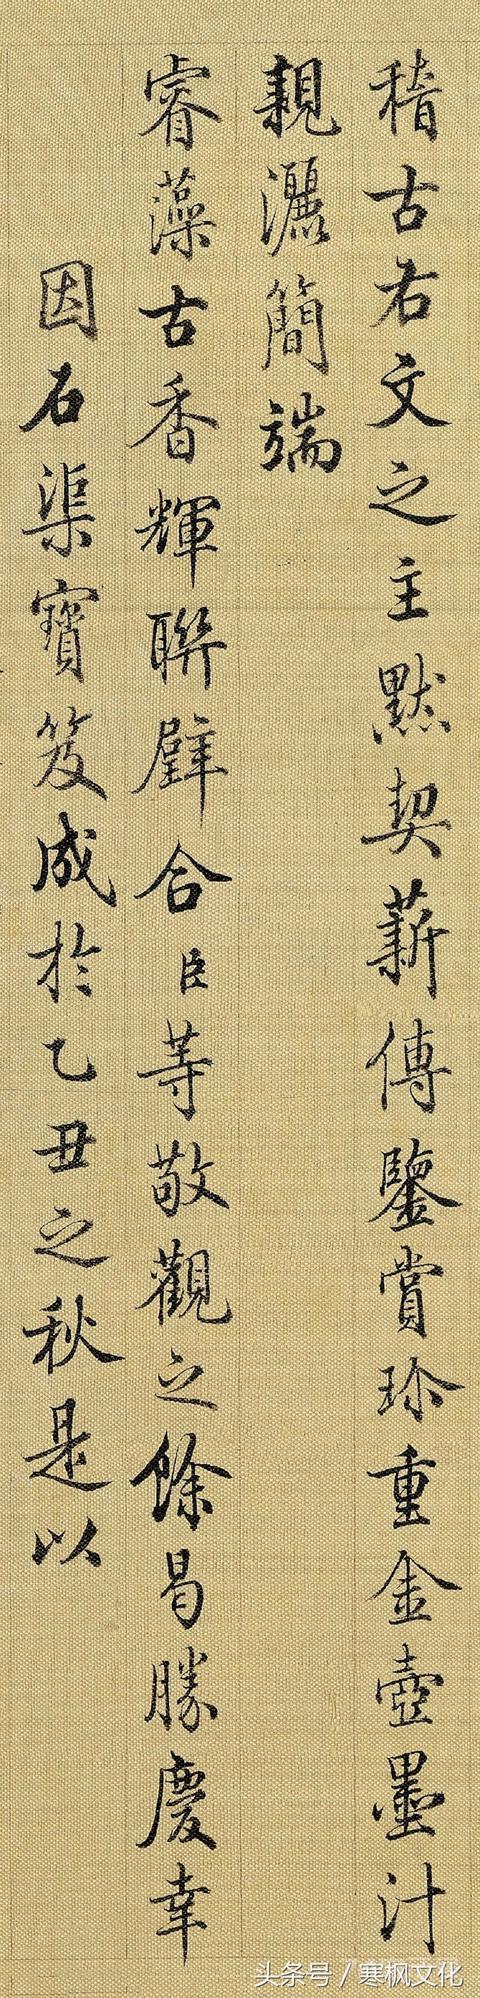 稽古右文之主默契薪傳鑒賞珍重金壺墨汁
親灑簡端
睿藻古香輝聯璧合臣等敬觀之餘曷勝慶幸
因石渠寶笈成於乙丑之秋是以
头条号/寒枫文化